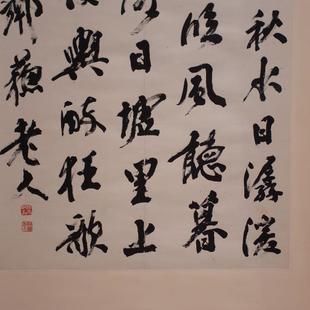 秋水日潺湲
臨風聽暮
日墟里上
輿醉狂歌
鄰蘓老人